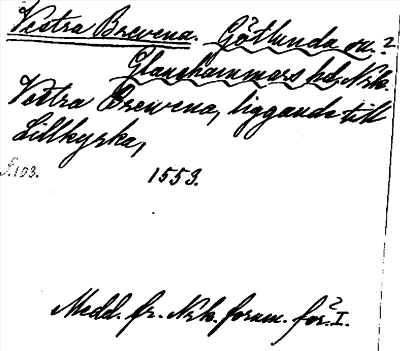 Vestra Brevena. Götlunda sn. 2.
Glanshammars hd, Nrk.
Vestra Brewena, liggande till
Lillkyrka,
S. 103. 1553.
Medd. fr. Nrk. fornm. för. I.